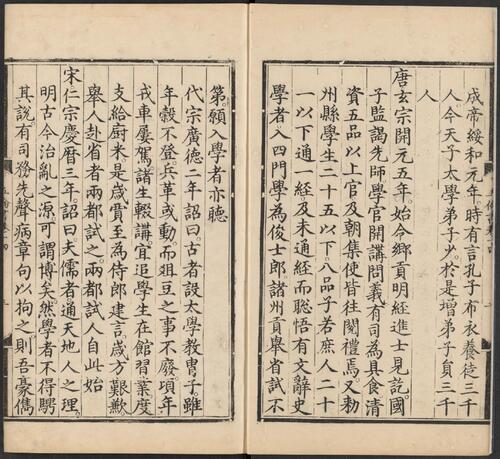 成帝綏和元年。時有言孔子布衣養徒三千
人。今天子太學弟子少。於是增弟子員三千
人
唐玄宗開元五年。始令鄉貢明經進士見訖。國
子監謁先師。學官開講問義。有司為具食。清
資五品以上官及朝集使皆往閱禮焉。又勅
州縣學生二十五以下。八品子若庶人二十
一以下通一經。及未通經而聰悟有文辭史
學者。入四門學為俊士。即諸州貢舉省試不
第。願入學者亦聽
代宗廣德二年。詔曰。古者設太學教冑子。雖
年穀不登。兵革或動。而俎豆之事不廢。頃年
戎車屢駕。諸生輟講。宜追學生在館習業。度
支給廚米。是歲賈至為侍郎建言歲方艱歉
舉人赴省者兩都試之。兩都試人自此始
宋仁宗慶曆三年。詔曰。夫儒者通天地人之理。
明古今治亂之源。可謂博矣。然學者不得騁
其說。有司務先聲病章句以拘之。則吾豪儁